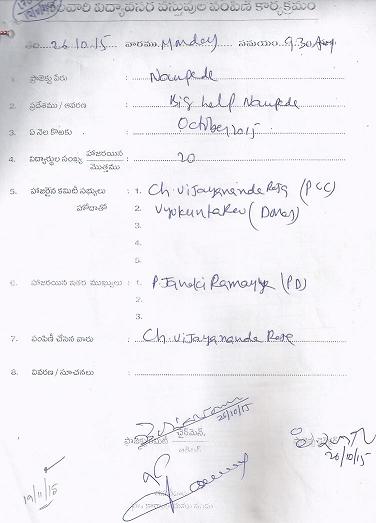 నెలవారీ విద్యావసర వస్తువుల పంపిణీ కార్యక్రమం
తేది 26.10.15 వారము Monday సమయం 9.30 Am
1. ప్రాజెక్టు పేరు : Naupede
2. ప్రదేశము / ఆవరణ : Big help Naupede
3. ఏ నెల కొఱకు : October 2015
4. విద్యార్థుల సంఖ్య హాజరయిన / మొత్తము : 20
5. హాజరైన కమిటీ సభ్యులు : 1. Ch. Vijayananda Raja (PCC)
హోదాతో 2. Vyokunta Rao (Donar)
3.
4.
5.
6. హాజరయిన ఇతర ముఖ్యులు : 1. P. Janaki Ramayya (PD)
2.
3.
7. పంపిణీ చేసిన వారు : Ch. Vijayananda Raja
8. వివరణ / సూచనలు :
26/10/15
చైర్‌మెన్,
26/10/15
19/11/15